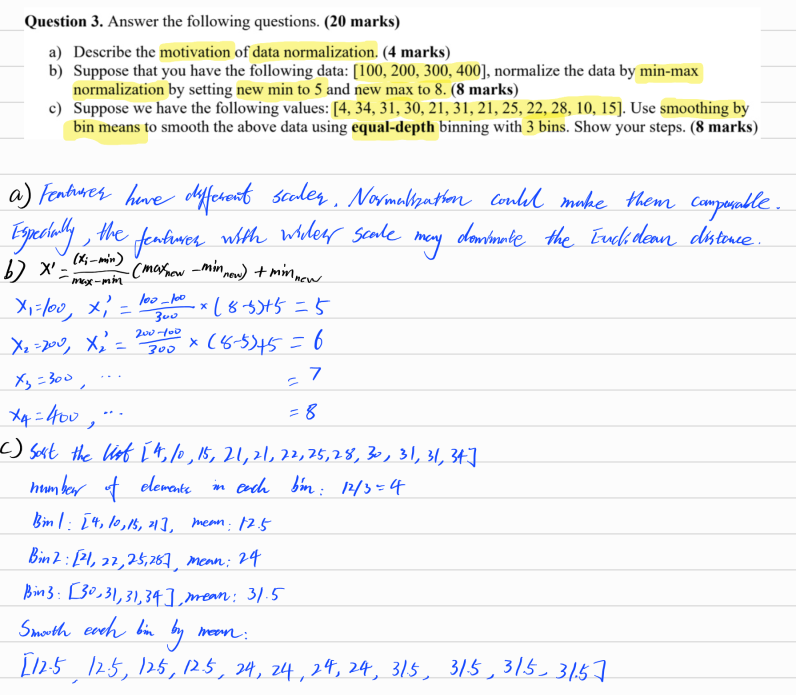 Question 3. Answer the following questions. (20 marks)
a) Describe the motivation of data normalization. (4 marks)
b) Suppose that you have the following data: [100, 200, 300, 400], normalize the data by min-max
normalization by setting new min to 5 and new max to 8. (8 marks)
c) Suppose we have the following values: [4, 34, 31, 30, 21, 31, 21, 25, 22, 28, 10, 15]. Use smoothing by
bin means to smooth the above data using equal-depth binning with 3 bins. Show your steps. (8 marks)
a) Features have different scales. Normalization could make them comparable.
Especially, the features with wider scale may dominate the Euclidean distance.
b) X' = (xi-min)/(max-min) (max new - min new) + min new
X1=100, X1' = (100-100)/300 × (8-5)+5 = 5
X2=200, X2' = (200-100)/300 × (8-5)+5 = 6
X3=300, ... = 7
X4=400, ... = 8
c) Sort the list [4, 10, 15, 21, 21, 22, 25, 28, 30, 31, 31, 34]
number of elements in each bin: 12/3=4
Bin1: [4, 10, 15, 21], mean: 12.5
Bin2: [21, 22, 25, 28], mean: 24
Bin3: [30, 31, 31, 34], mean: 31.5
Smooth each bin by mean:
[12.5, 12.5, 12.5, 12.5, 24, 24, 24, 24, 31.5, 31.5, 31.5, 31.5]